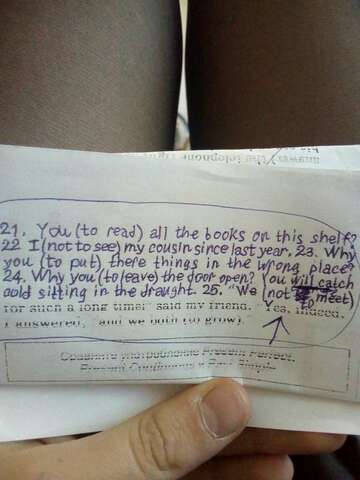 answer) the telephone
21. You (to read) all the books on this shelf?
22 I (not to see) my cousin since last year. 23. Why
you (to put) there things in the wrong place?
24. Why you (to leave) the door open? You will catch
cold sitting in the draught. 25. "We (not to meet)
for such a long time!" said my friend. "Yes, indeed,"
I answered, "and we both (to grow)
Present Continuous и Past Simple